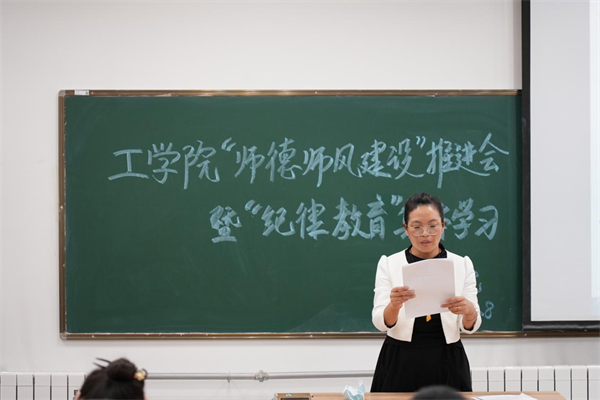 工学院“师德师风建设”推进会
暨“纪律教育”学习
8